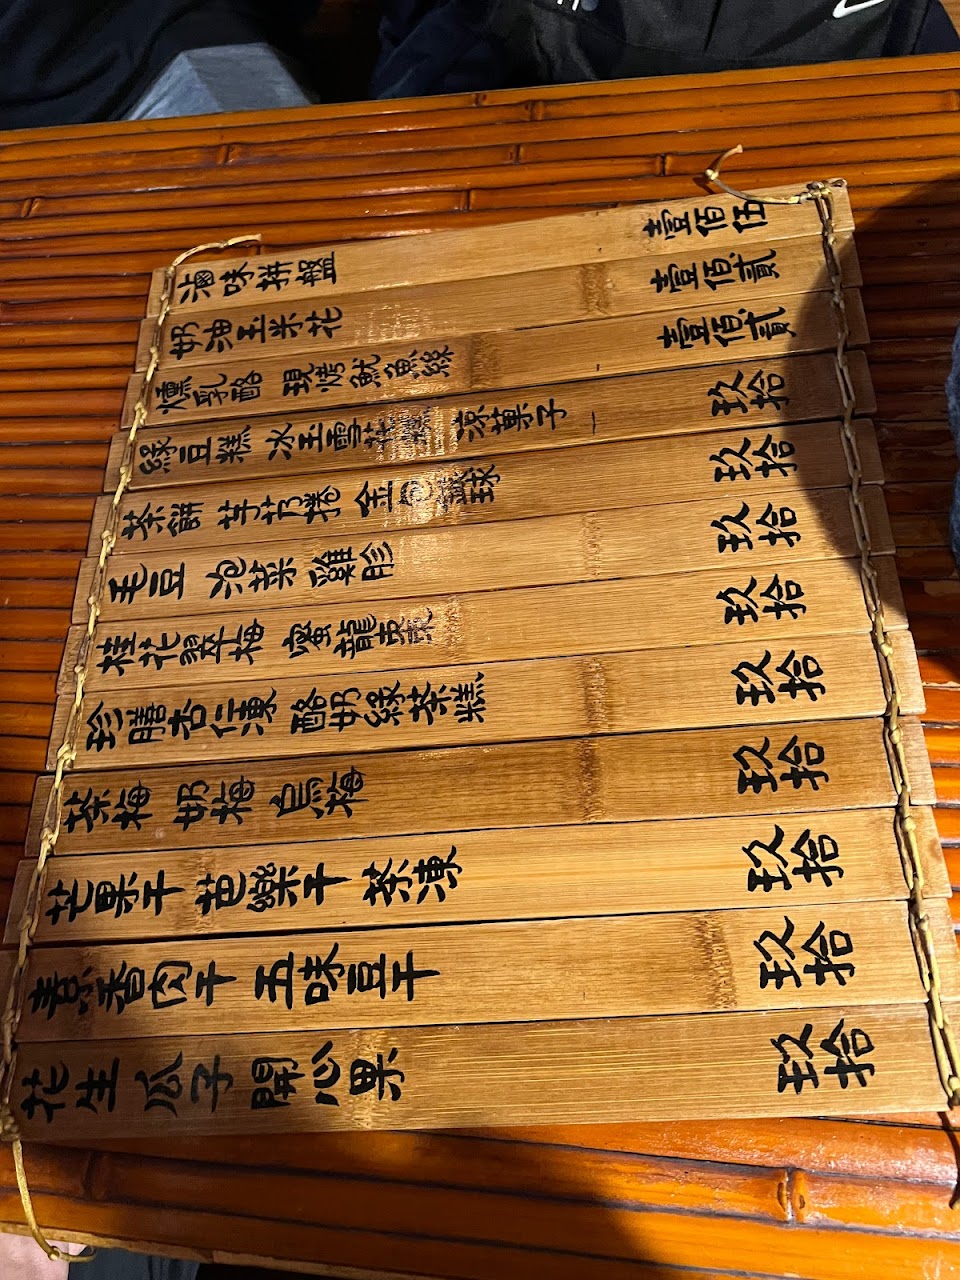 滷味拼盤 壹佰伍
奶油玉米花 壹佰貳
燻乳酪 現烤魷魚絲 壹佰貳
綠豆糕 冰玉雪花 涼菓子 玖拾
茶餅 芋奶捲 玖拾
毛豆 泡菜 雞胗 玖拾
桂花翠梅 蜜龍棗 玖拾
珍膳杏仁凍 酪奶綠茶糕 玖拾
茶梅 奶梅 烏梅 玖拾
芒果干 芭樂干 茶凍 玖拾
素香肉干 五味豆干 玖拾
花生 瓜子 開心果 玖拾